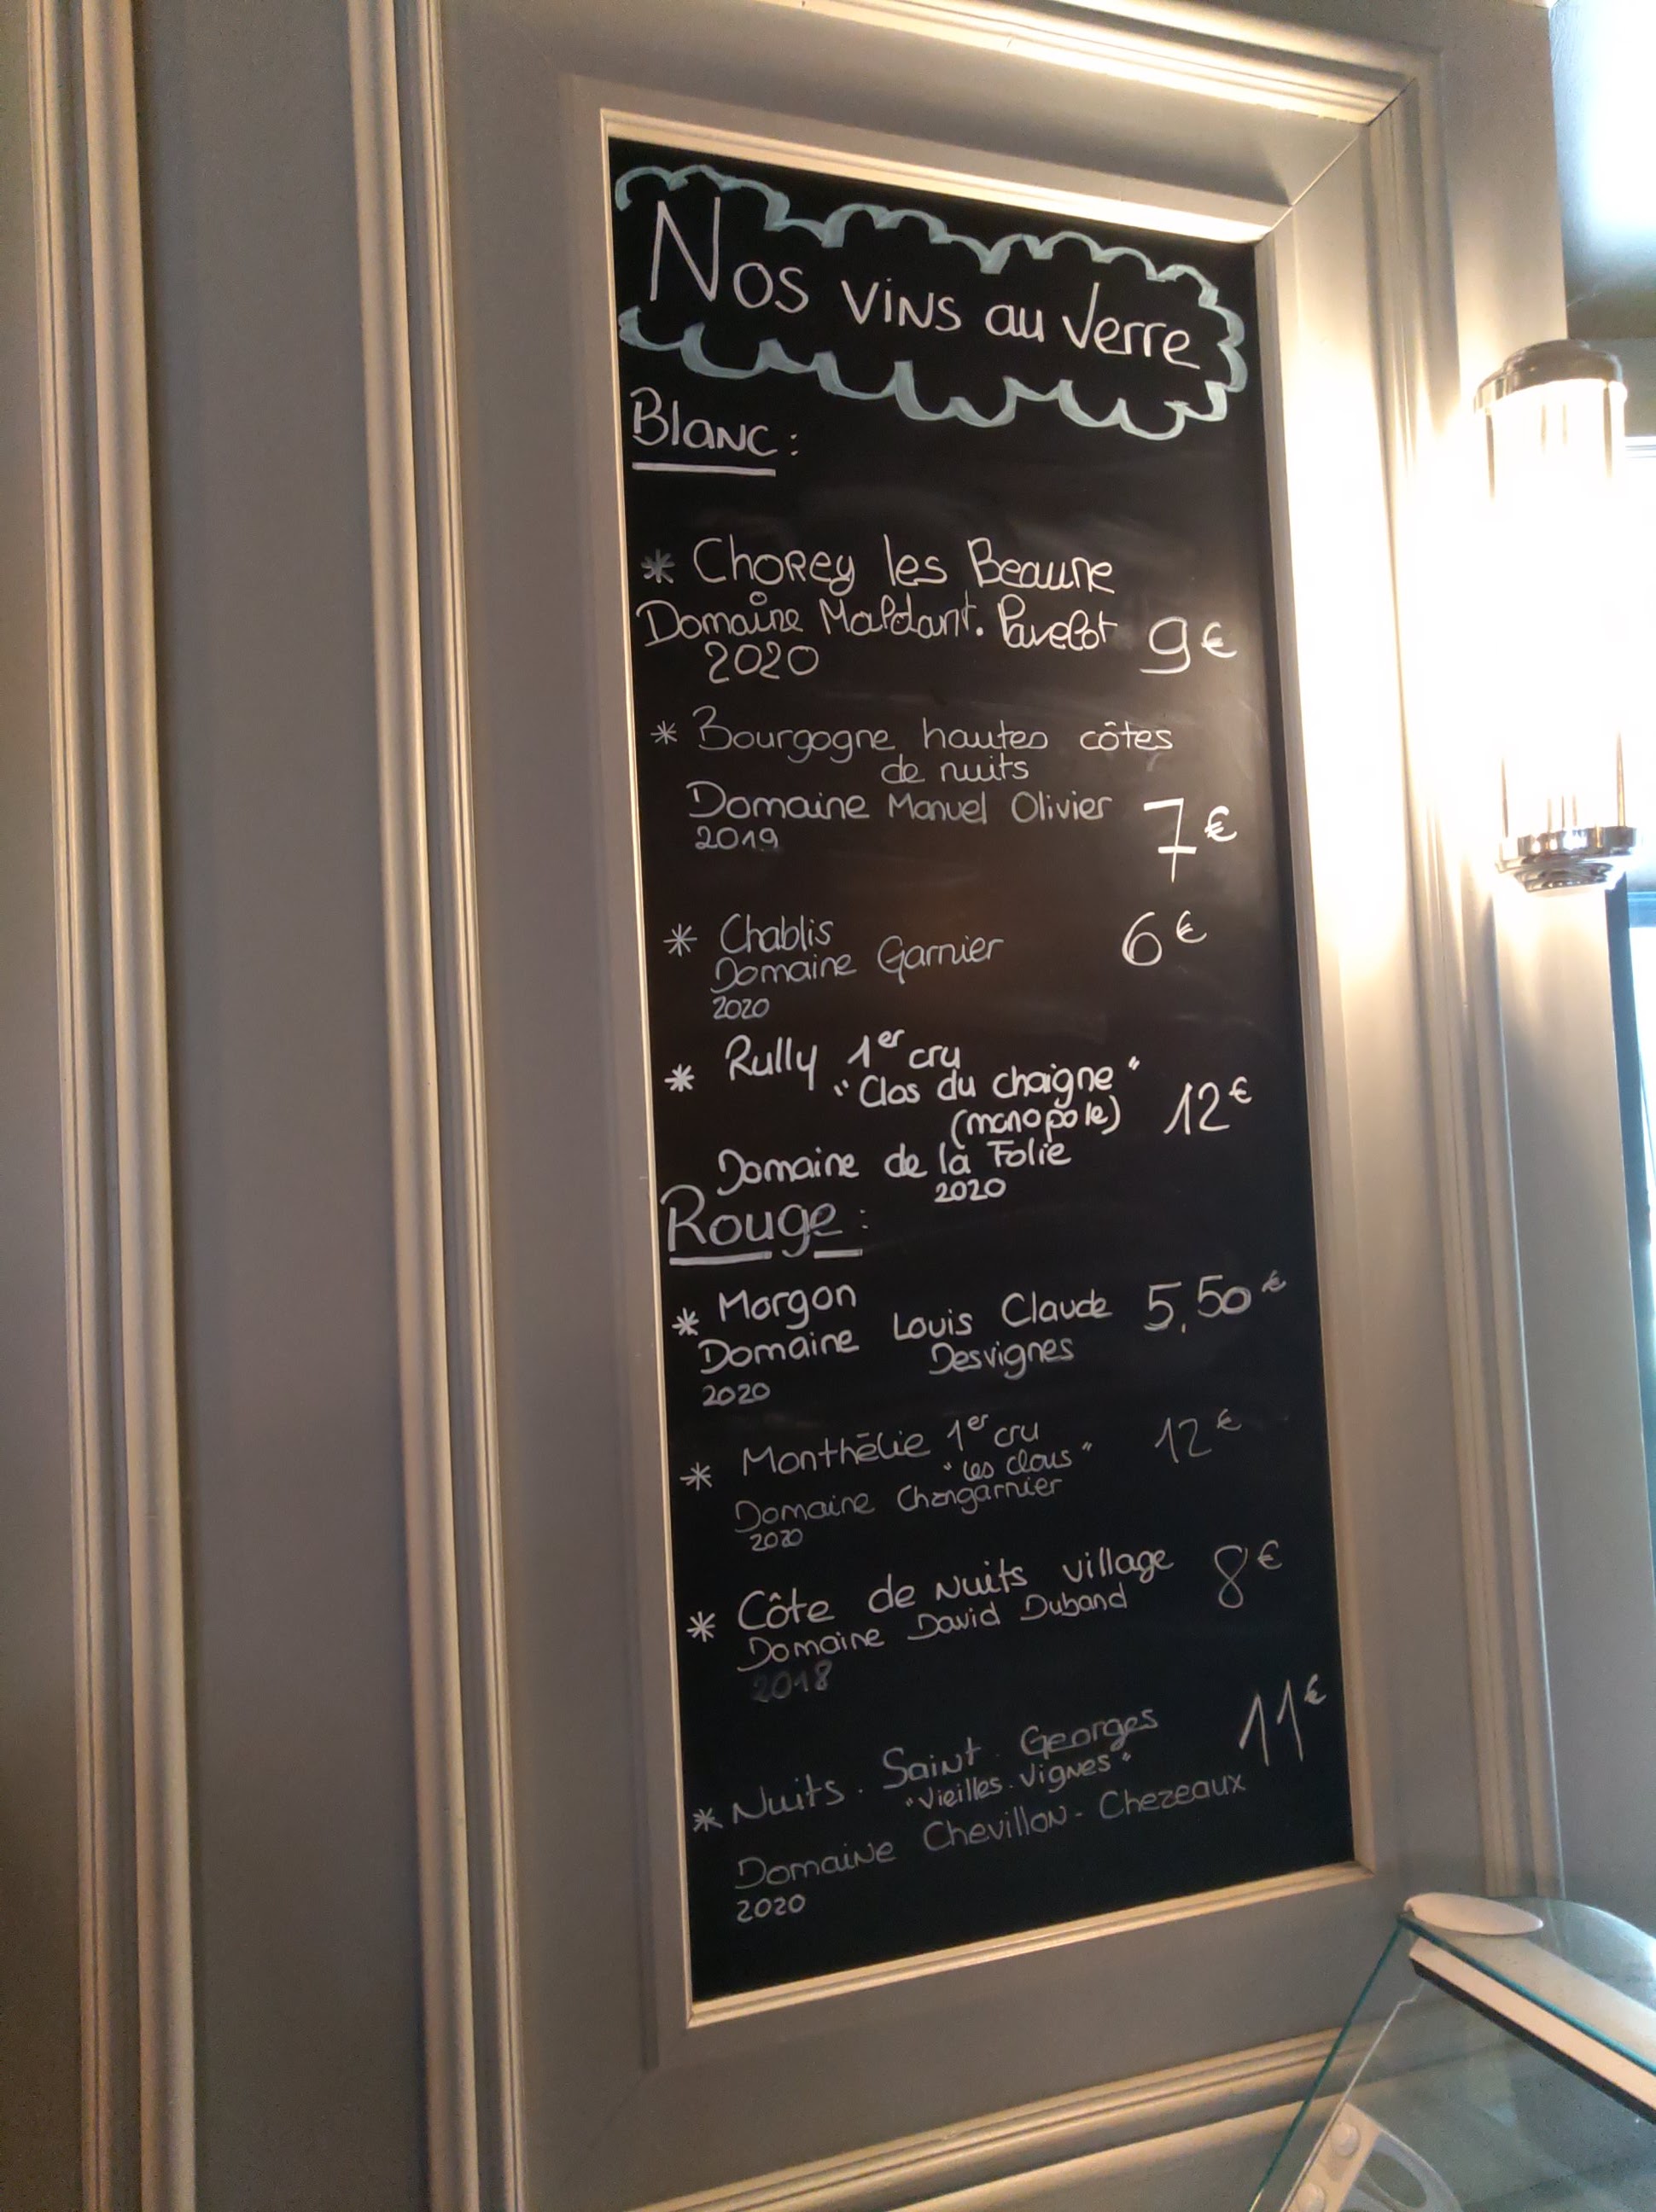 Nos vins au verre
Blanc :
* Chorey les Beaune
Domaine Maldant. Pavelot 9€
2020
* Bourgogne hautes côtes
de nuits
Domaine Manuel Olivier 7€
2019
* Chablis 6€
Domaine Garnier
2020
* Rully 1er cru
"Clos du chaigne"
(monopole) 12€
Domaine de la Folie
2020
Rouge :
* Morgon
Domaine Louis Claude 5,50€
Desvignes
2020
* Monthélie 1er cru 12€
"Les clous"
Domaine Changarnier
2020
* Côte de Nuits village 8€
Domaine David Duband
2018
* Nuits. Saint. Georges 11€
"Vieilles. Vignes"
Domaine Chevillon - Chezeaux
2020